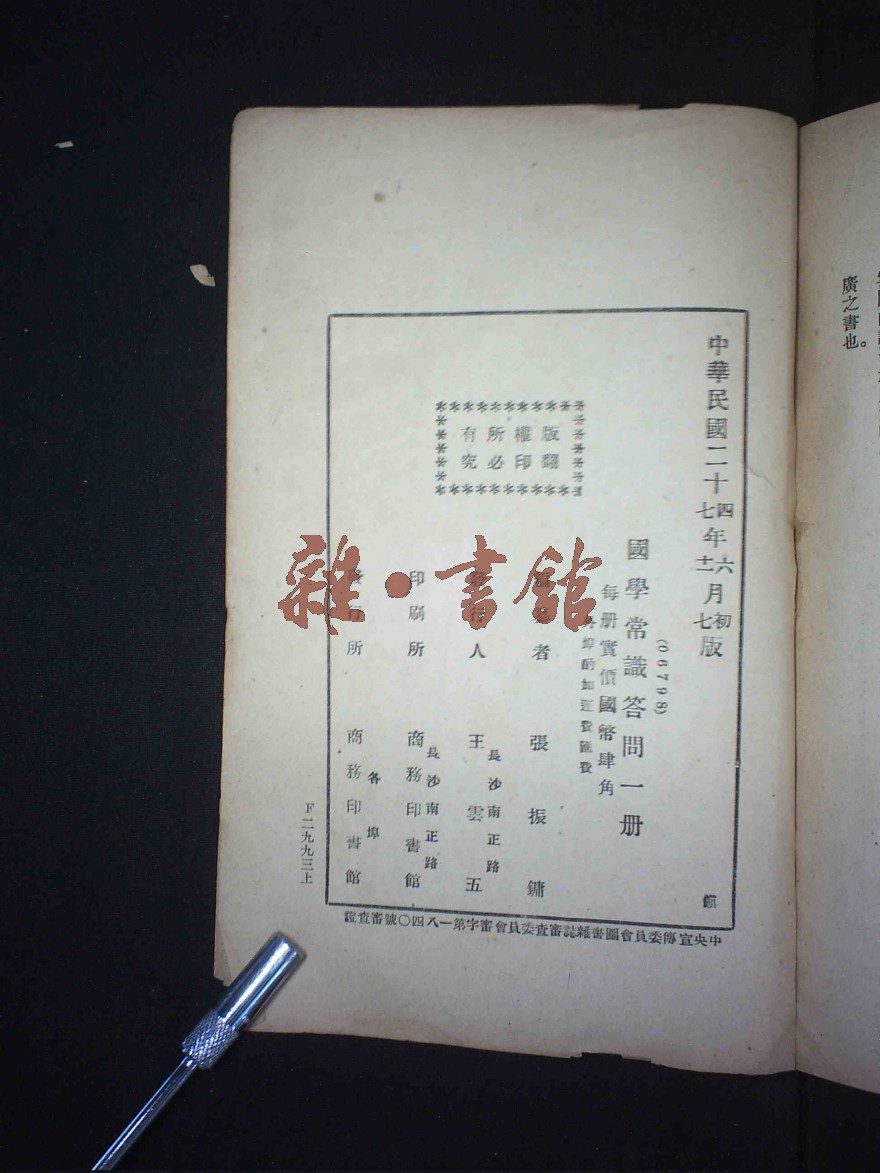 中華民國二十四年六月初版
七 十二 七
(06798)
國學常識答問一册
每册實價國幣肆角
外埠酌加運費匯費
版權所有
翻印必究
者 張振鏞
長沙南正路
發行人 王雲五
長沙南正路
印刷所 商務印書館
各埠
發行所 商務印書館
中央宣傳委員會圖書雜誌審查委員會審字第一八四〇號審查證
F二九九三上
雜·書館
廣之書也。